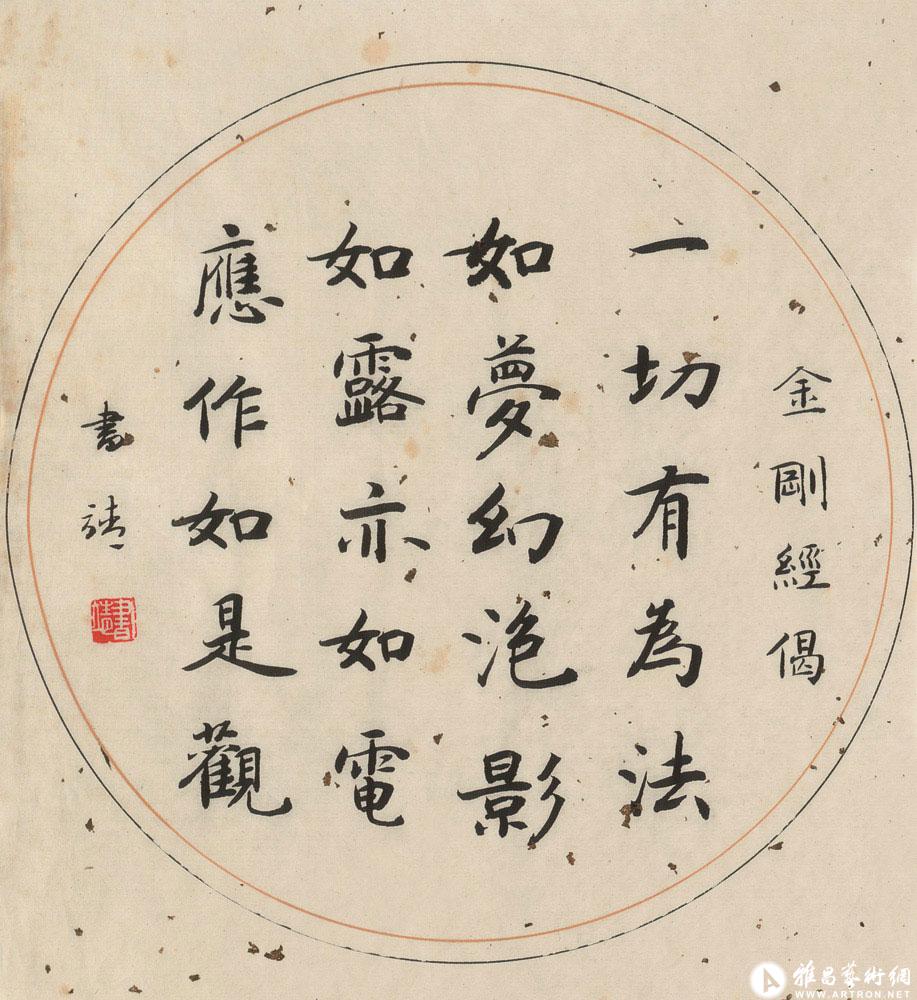 金剛經偈
一切有為法
如夢幻泡影
如露亦如電
應作如是觀
書靖
雅昌藝術網
WWW.ARTRON.NET